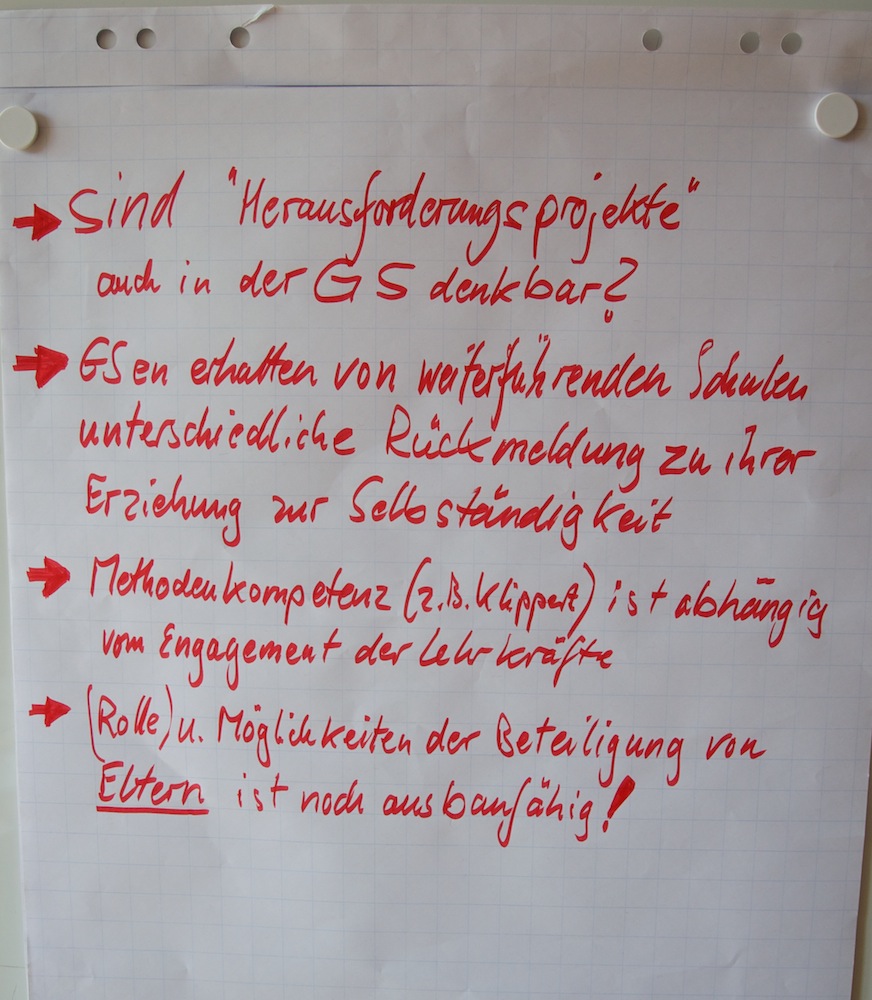 → Sind "Herausforderungsprojekte"
auch in der GS denkbar?
→ GSen erhalten von weiterführenden Schulen
unterschiedliche Rückmeldung zu ihrer
Erziehung zur Selbständigkeit
→ Methodenkompetenz (z.B. Klippert) ist abhängig
vom Engagement der Lehrkräfte
→ (Rolle) u. Möglichkeiten der Beteiligung von
Eltern ist noch ausbaufähig!